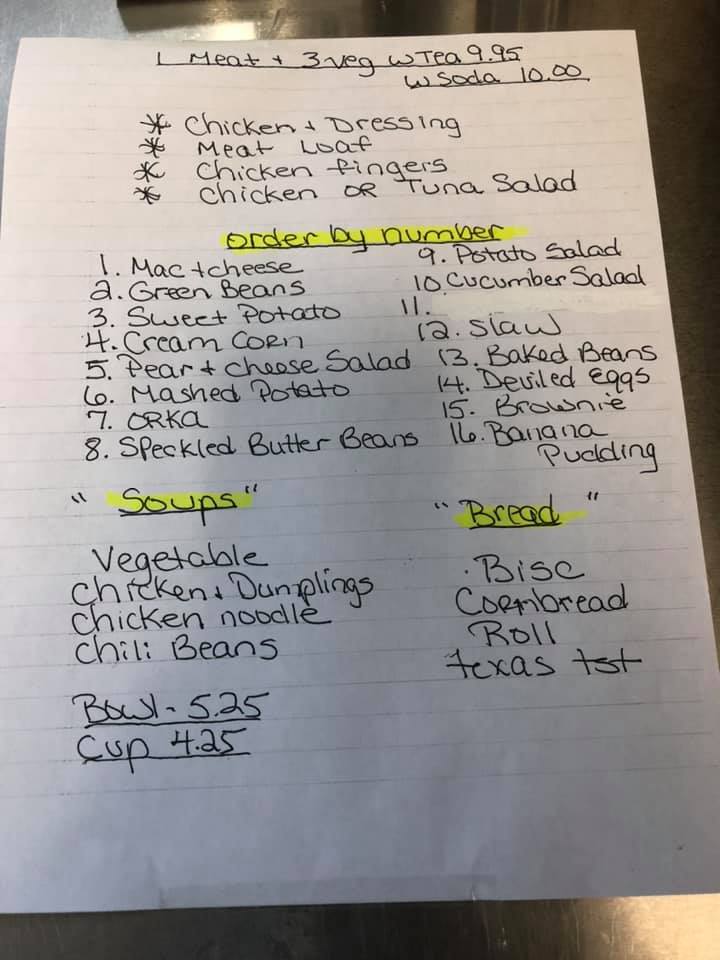 1 Meat + 3 veg w Tea 9.95
w Soda 10.00
* Chicken + Dressing
* Meat Loaf
* Chicken fingers
* Chicken OR Tuna Salad
order by number
1. Mac + cheese
2. Green Beans
3. Sweet Potato
4. Cream Corn
5. Pear + cheese Salad
6. Mashed Potato
7. ORKA
8. Speckled Butter Beans
9. Potato Salad
10. Cucumber Salad
11.
12. Slaw
13. Baked Beans
14. Deviled Eggs
15. Brownie
16. Banana
Pudding
"Soups"
Vegetable
Chicken + Dumplings
Chicken noodle
Chili Beans
Bowl - 5.25
Cup 4.25
"Bread"
Bisc
Cornbread
Roll
Texas tst